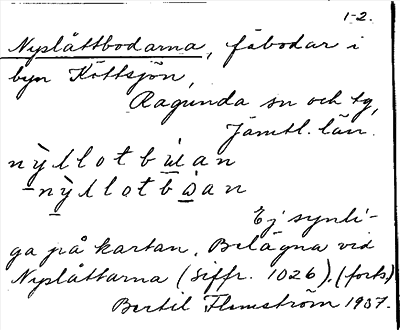 1-2.
Nyslåttbodarna, fäbodar i
byn Köttsjön,
Ragunda sn och tg,
Jämtl. län.
Ej synli-
ga på kartan. Belägna vid
Nyslåttarna (siffr. 1026). (forts)
Bertil Flemström 1937.